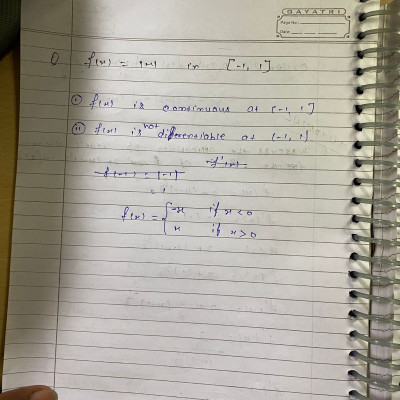 GAYATRI
Page No.
Date
Q f(x) = |x| in [-1, 1]
(i) f(x) is continuous at [-1, 1]
(ii) f(x) is not differentiable at [-1, 1]
f'(x) =
f(-1) = |-1|
= 1
f(x) = { -x if x<0
x if x>0